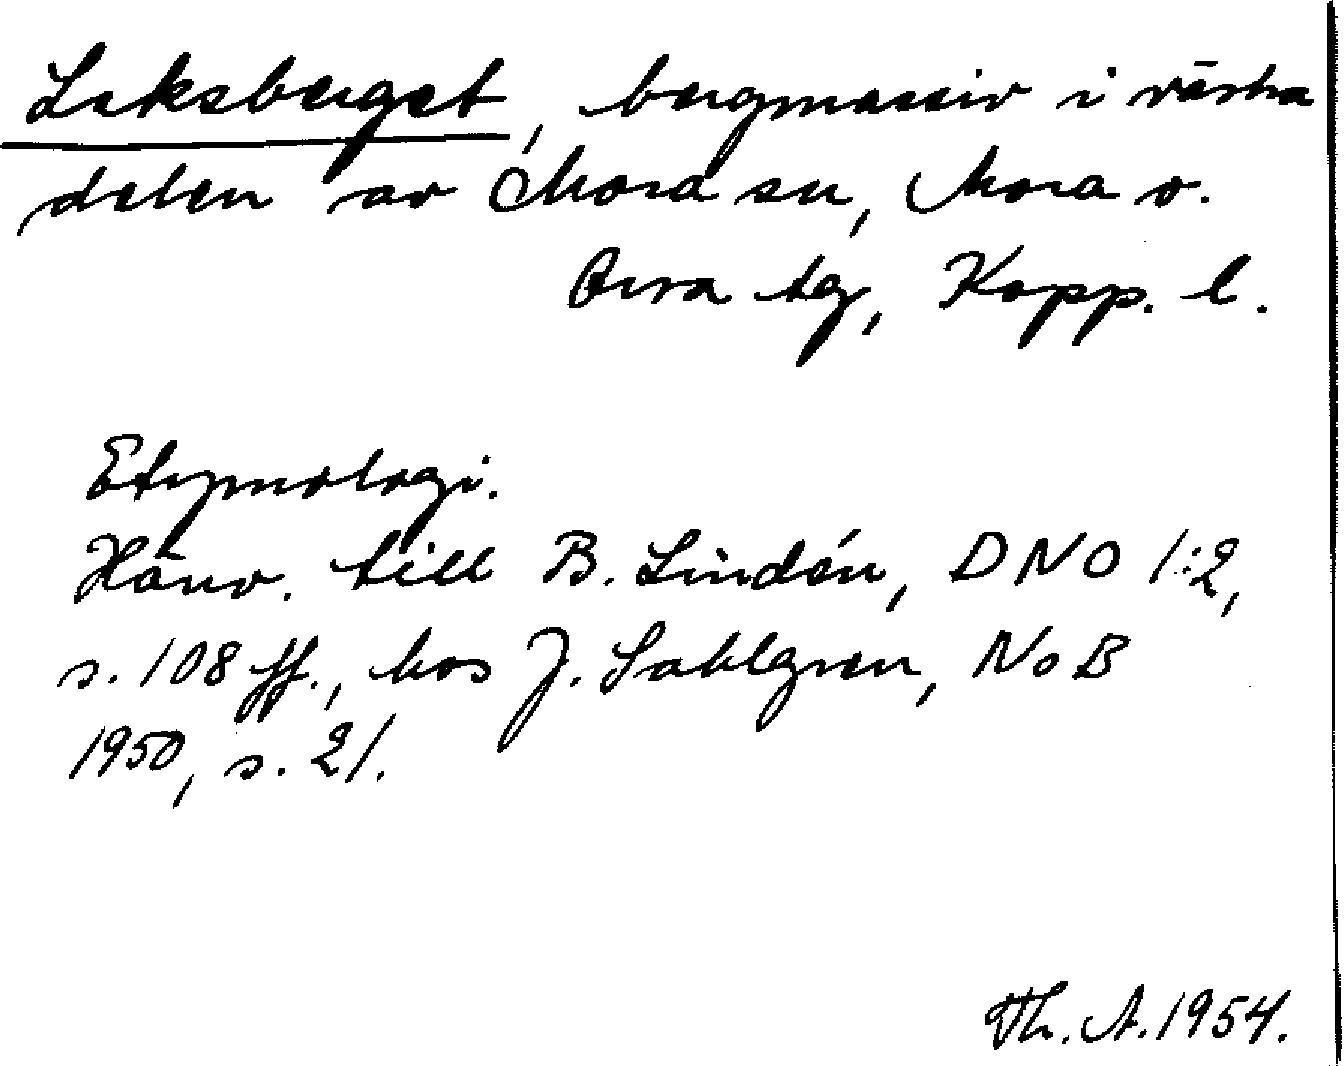 Leksberget, bergmassiv i västra
delen av Mora sn, Mora o.
Orsa tg, Kopp. l.
Etymologi.
Hänv. till B. Lindén, DNO 1:2,
s. 108 ff., hos J. Sahlgren, NoB
1950, s. 21.
Th. A. 1954.